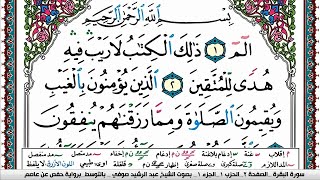 بِسْمِ ٱللَّهِ ٱلرَّحْمَٰنِ ٱلرَّحِيمِ
الٓمٓ ١ ذَٰلِكَ ٱلْكِتَٰبُ لَا رَيْبَ فِيهِ
هُدًى لِّلْمُتَّقِينَ ٢ ٱلَّذِينَ يُؤْمِنُونَ بِٱلْغَيْبِ
وَيُقِيمُونَ ٱلصَّلَوٰةَ وَمِمَّا رَزَقْنَٰهُمْ يُنفِقُونَ
سورة البقرة . الصفحة ٢ . الحزب ١ . الجزء ١ . بصوت الشيخ عبد الرشيد صوفي . بالتوسط . برواية حفص عن عاصم